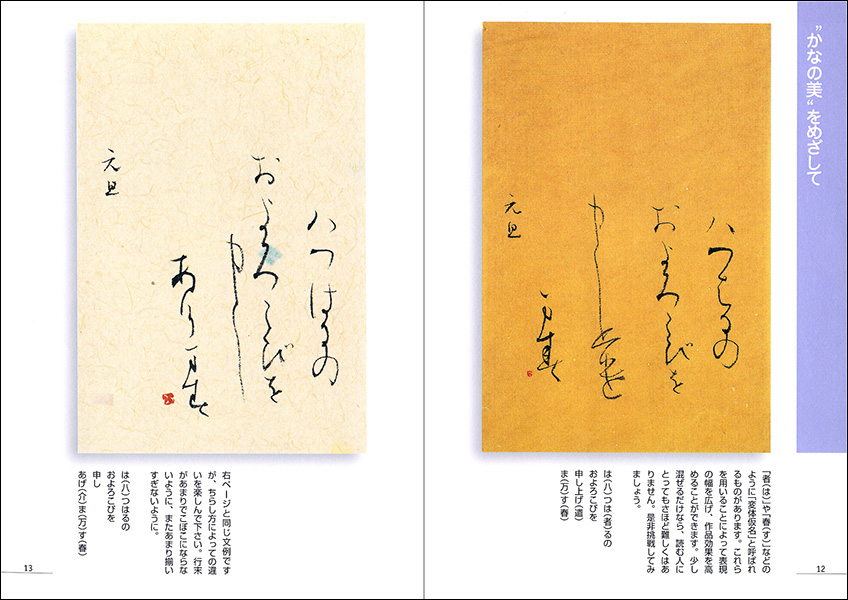 ”かなの美“をめざして
ハつ者るの
およろこびを
申し上遣
万春
元旦
「者(は)」や「春(す)」などの
ように「変体仮名」と呼ばれ
るものがあります。これら
を用いることによって表現
の幅を広げ、作品効果を高
めることができます。少し
混ぜるだけなら、読む人に
とってもさほど難しくはあ
りません。是非挑戦してみ
ましょう。
は(八)つは(者)るの
およろこびを
申し上げ(遣)
ま(万)す(春)
12
ハつはるの
およろこびを
申し
あ介万春
元旦
右ページと同じ文例です
が、ちらし方によっての違
いを楽しんで下さい。行末
があまりでこぼこにならな
いように、またあまり揃い
すぎないように。
は(八)つはるの
およろこびを
申し
あげ(介)ま(万)す(春)
13